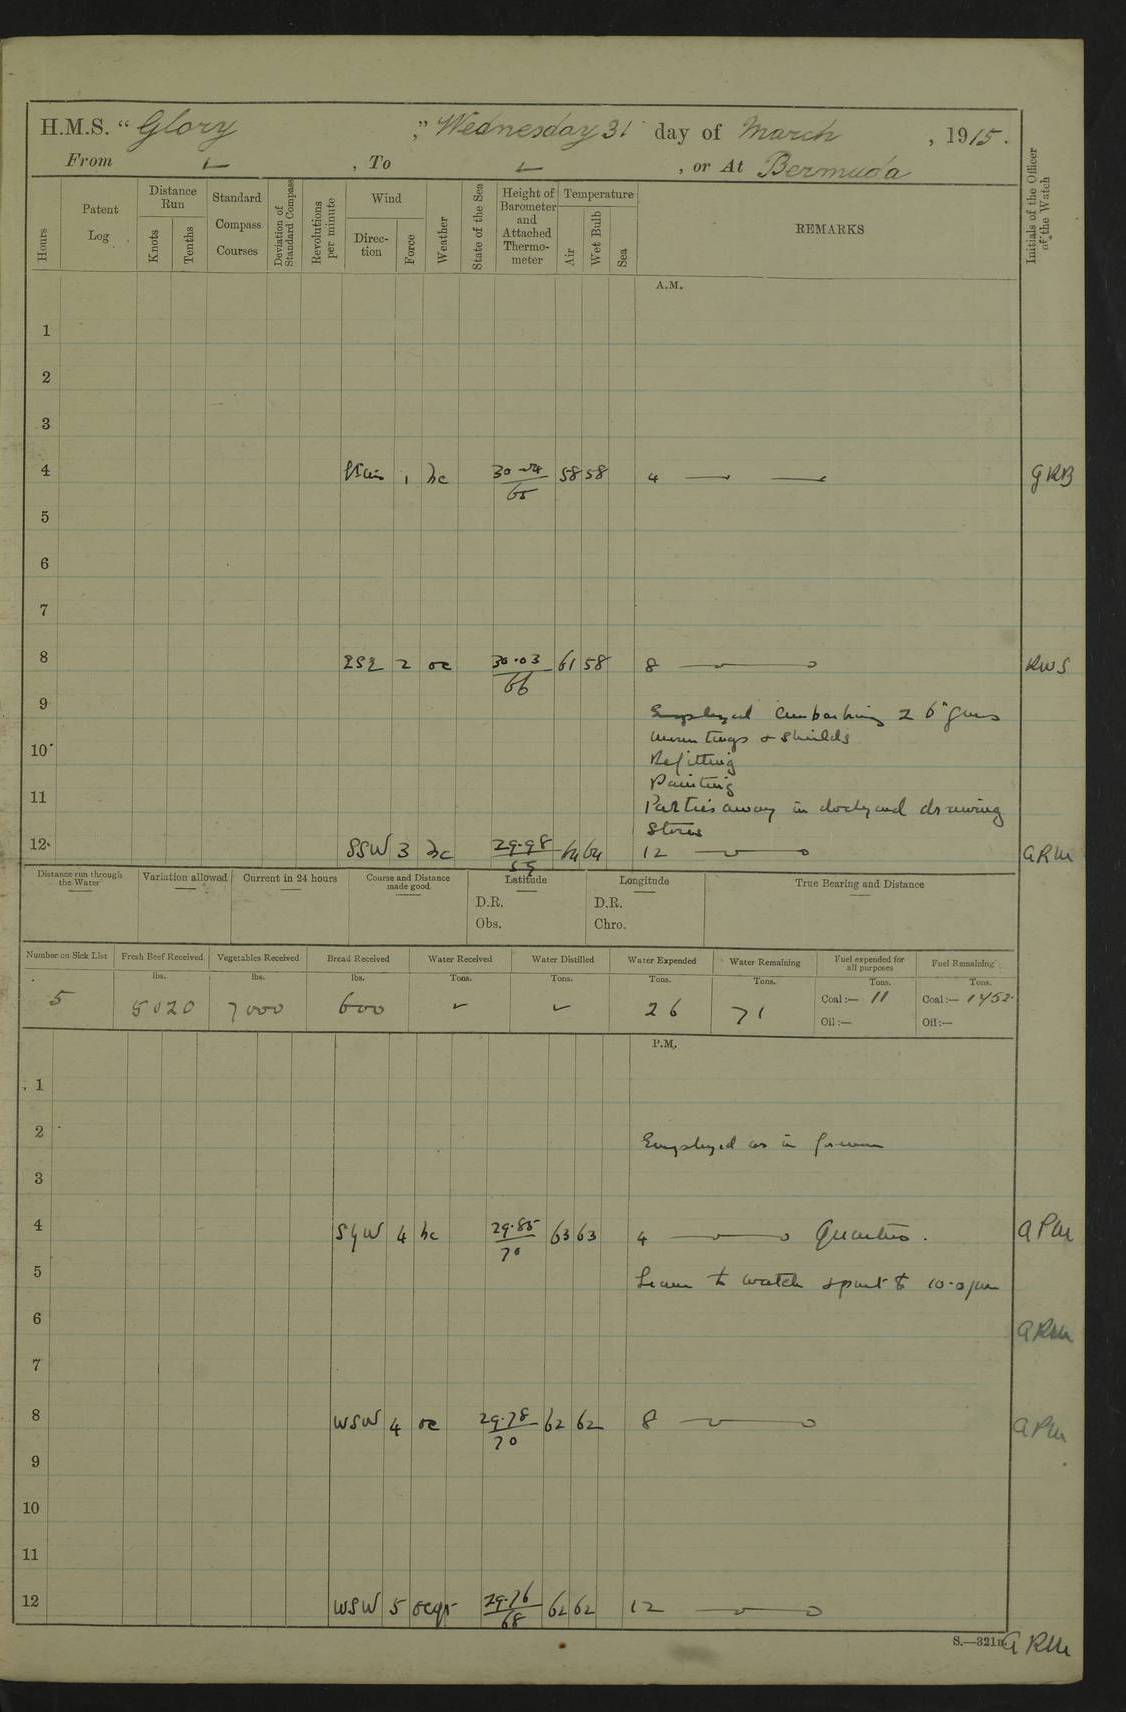 H.M.S. "Glory," Wednesday 31 day of March, 1915.
From — , To — , or At Bermuda
Hours
Patent Log
Distance Run
Knots
Tenths
Standard Compass Courses
Deviation of Standard Compass
Revolutions per minute
Wind
Direction
Force
Weather
State of the Sea
Height of Barometer and Attached Thermometer
Temperature
Air
Wet Bulb
Sea
REMARKS
Initials of the Officer of the Watch
A.M.
1
2
3
4 1 bc 65 58 58 4 — — GRB
5
6
7
8 ESE 2 oc 30.03 66 61 58 8 — RWS
9 Employed embarking 2 6" guns
mountings & shields
10 Refitting
Painting
11 Parties away in dockyard drawing
stores
12 SSW 3 bc 29.98 64 64 12 — ARM
Distance run through the Water
Variation allowed
Current in 24 hours
Course and Distance made good
Latitude
D.R.
Obs.
Longitude
D.R.
Chro.
True Bearing and Distance
Number on Sick List
Fresh Beef Received
Vegetables Received
Bread Received
Water Received
Water Distilled
Water Expended
Water Remaining
Fuel expended for all purposes
Fuel Remaining
lbs. lbs. lbs. Tons. Tons. Tons. Tons. Tons. Tons.
5 5020 7000 600 26 71 Coal:— 11 Coal:— 1452
Oil:— Oil:—
P.M.
1
2 Employed as in forenoon
3
4 SyW 4 bc 29.85 70 63 63 4 — Quarters. APM
5 Leave to watch & part to 10.0 pm
6 ARM
7
8 WSW 4 oc 29.78 70 62 62 8 — APM
9
10
11
12 WSW 5 ocqr 29.76 68 62 62 12 —
S.—321 ARM